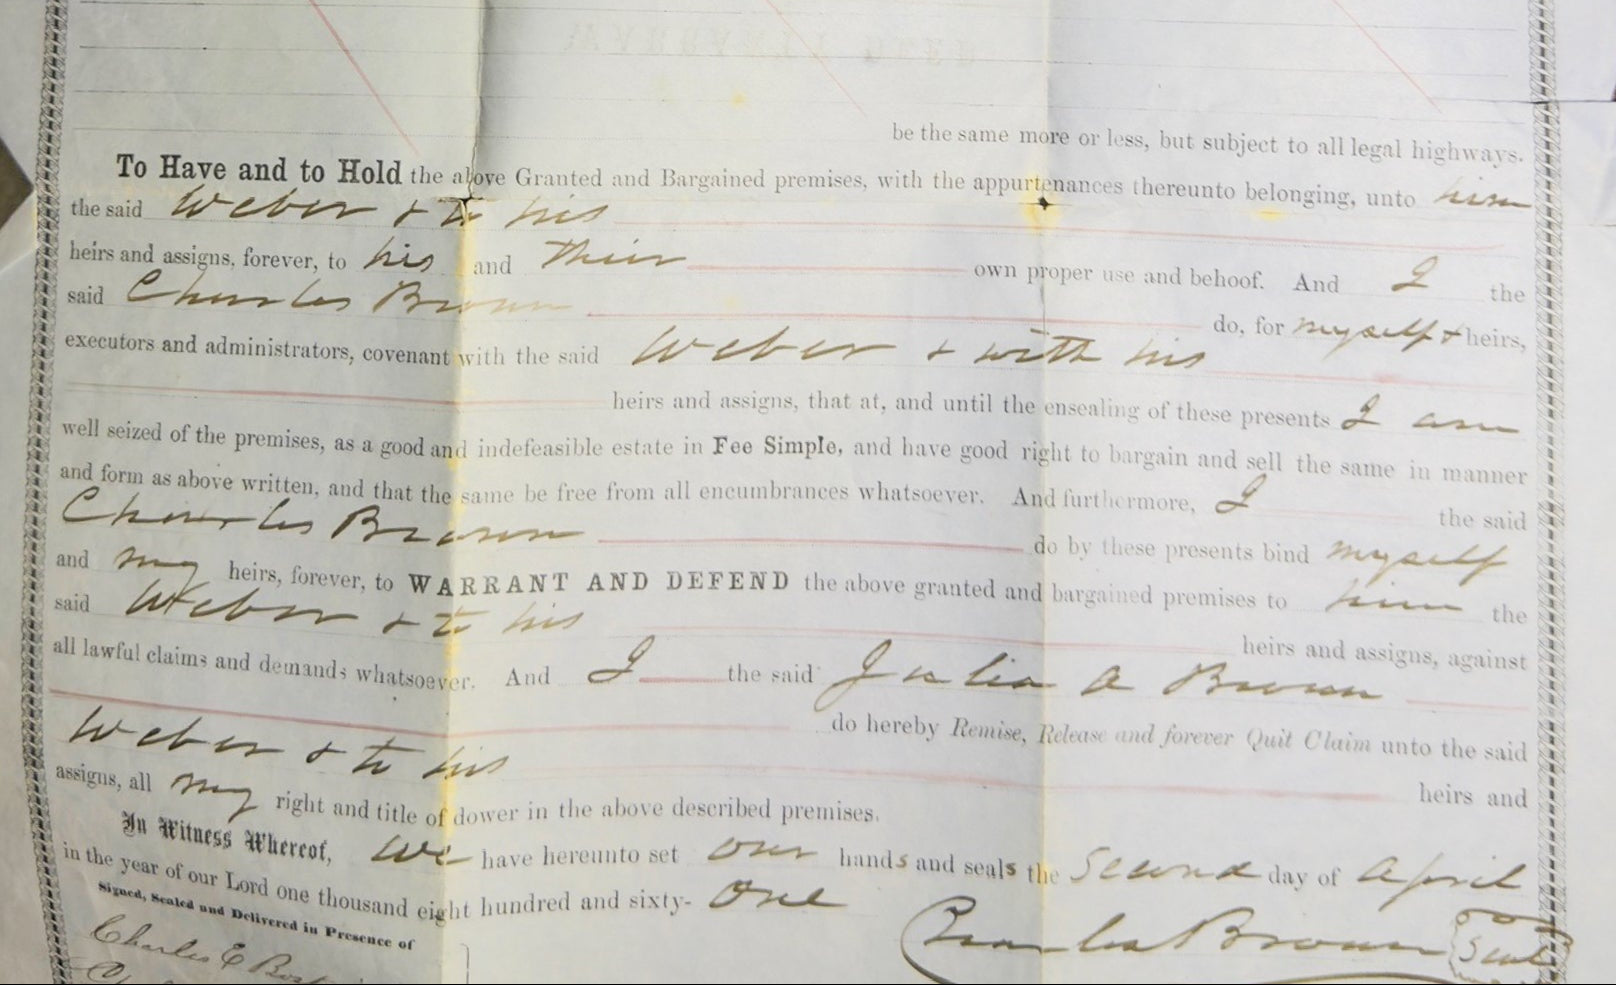 WARRANTY DEED
be the same more or less, but subject to all legal highways.
To Have and to Hold the above Granted and Bargained premises, with the appurtenances thereunto belonging, unto him
the said Weber & to his
heirs and assigns, forever, to his and their own proper use and behoof. And I the
said Charles Brown do, for myself & heirs,
executors and administrators, covenant with the said Weber & with his
heirs and assigns, that at, and until the ensealing of these presents I am
well seized of the premises, as a good and indefeasible estate in Fee Simple, and have good right to bargain and sell the same in manner
and form as above written, and that the same be free from all encumbrances whatsoever. And furthermore, I the said
Charles Brown do by these presents bind myself
and my heirs, forever, to WARRANT AND DEFEND the above granted and bargained premises to him the
said Weber & to his heirs and assigns, against
all lawful claims and demands whatsoever. And I the said Julia A Brown
do hereby Remise, Release and forever Quit Claim unto the said
Weber & to his heirs and
assigns, all my right and title of dower in the above described premises.
In Witness Whereof, We have hereunto set our hands and seals the Second day of April
in the year of our Lord one thousand eight hundred and sixty- one
Signed, Sealed and Delivered in Presence of
Charles Brown Seal
Charles E